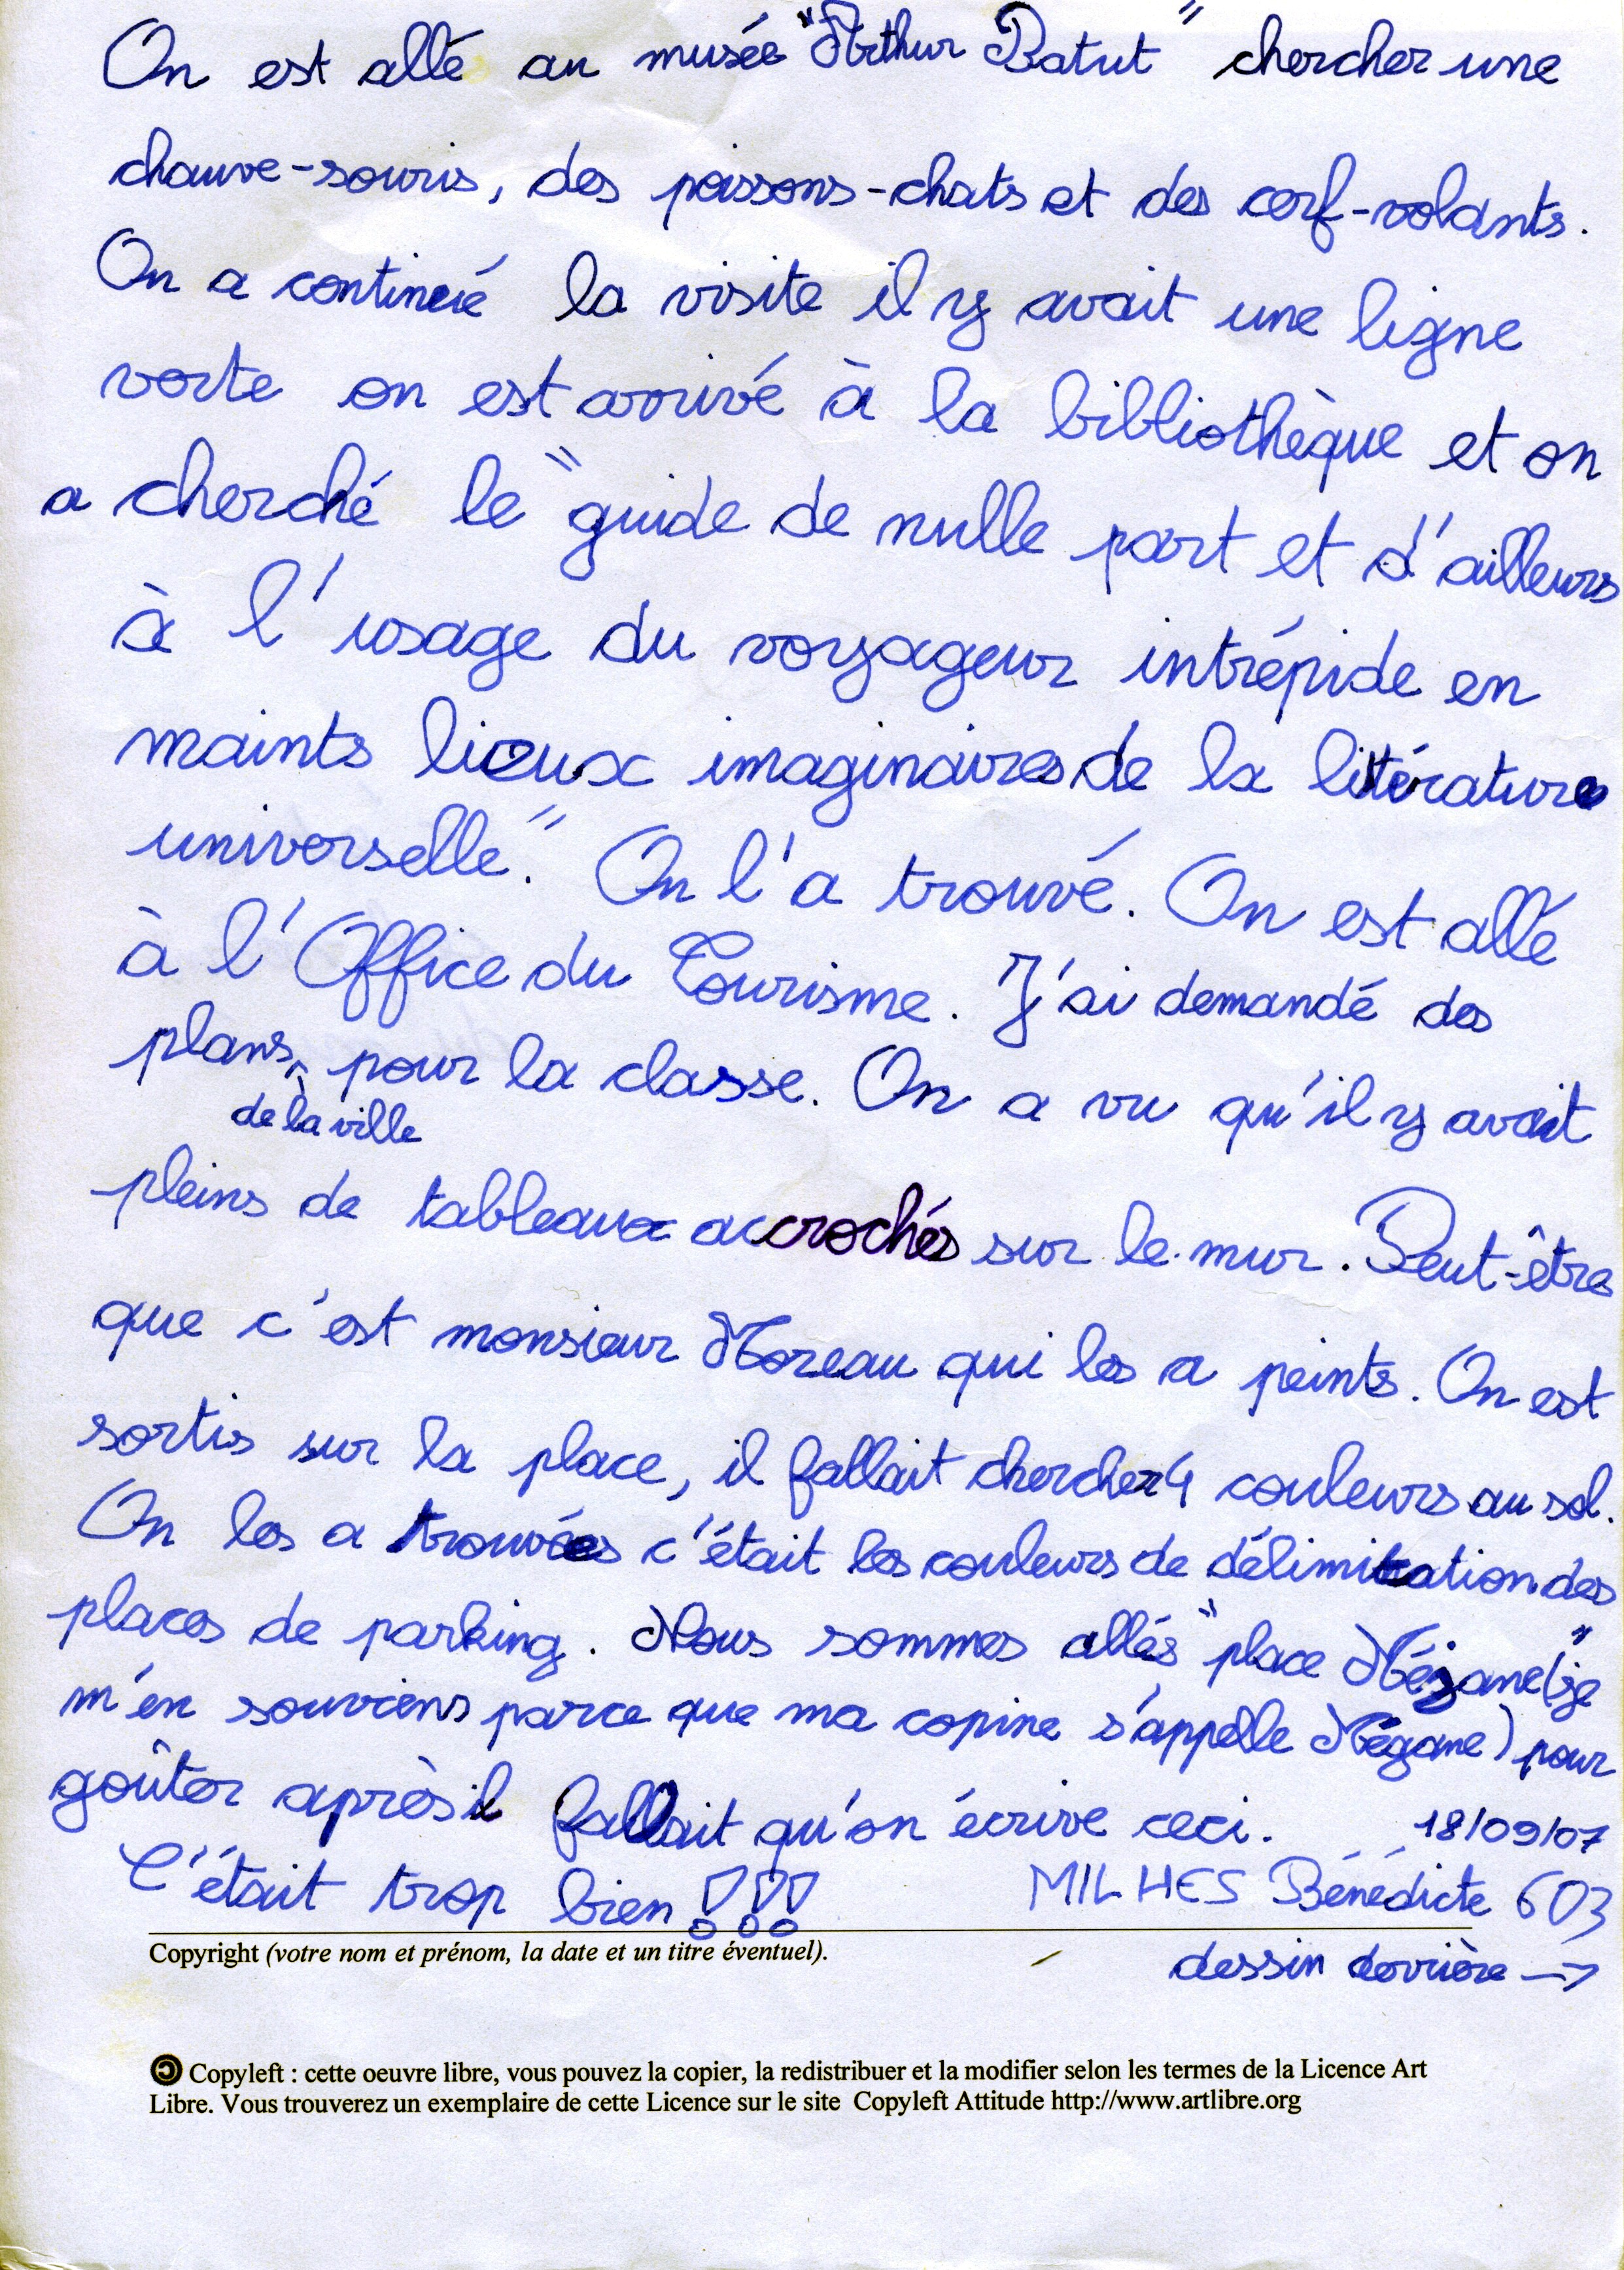 On est allé au musée "Arthur Batut" chercher une
chauve-souris, des poissons-chats et des cerf-volants.
On a continué la visite il y avait une ligne
verte on est arrivé à la bibliothèque et on
a cherché le "guide de nulle part et d'ailleurs
à l'usage du voyageur intrépide en
maints lieux imaginaires de la littérature
universelle". On l'a trouvé. On est allé
à l'Office du Tourisme. J'ai demandé des
plans pour la classe. On a vu qu'il y avait
de la ville
pleins de tableaux accrochés sur le mur. Peut-être
que c'est monsieur Moreau qui les a peints. On est
sortis sur la place, il fallait chercher 4 couleurs au sol.
On les a trouvées c'était les couleurs de délimitation des
places de parking. Nous sommes allés "place Méjane" (je
m'en souviens parce que ma copine s'appelle Mégane) pour
goûter après il fallait qu'on écrive ceci. 18/09/07
C'était trop bien !!! MILHES Bénédicte 603
Copyright (votre nom et prénom, la date et un titre éventuel).
dessin derrière →
Copyleft : cette oeuvre libre, vous pouvez la copier, la redistribuer et la modifier selon les termes de la Licence Art
Libre. Vous trouverez un exemplaire de cette Licence sur le site Copyleft Attitude http://www.artlibre.org